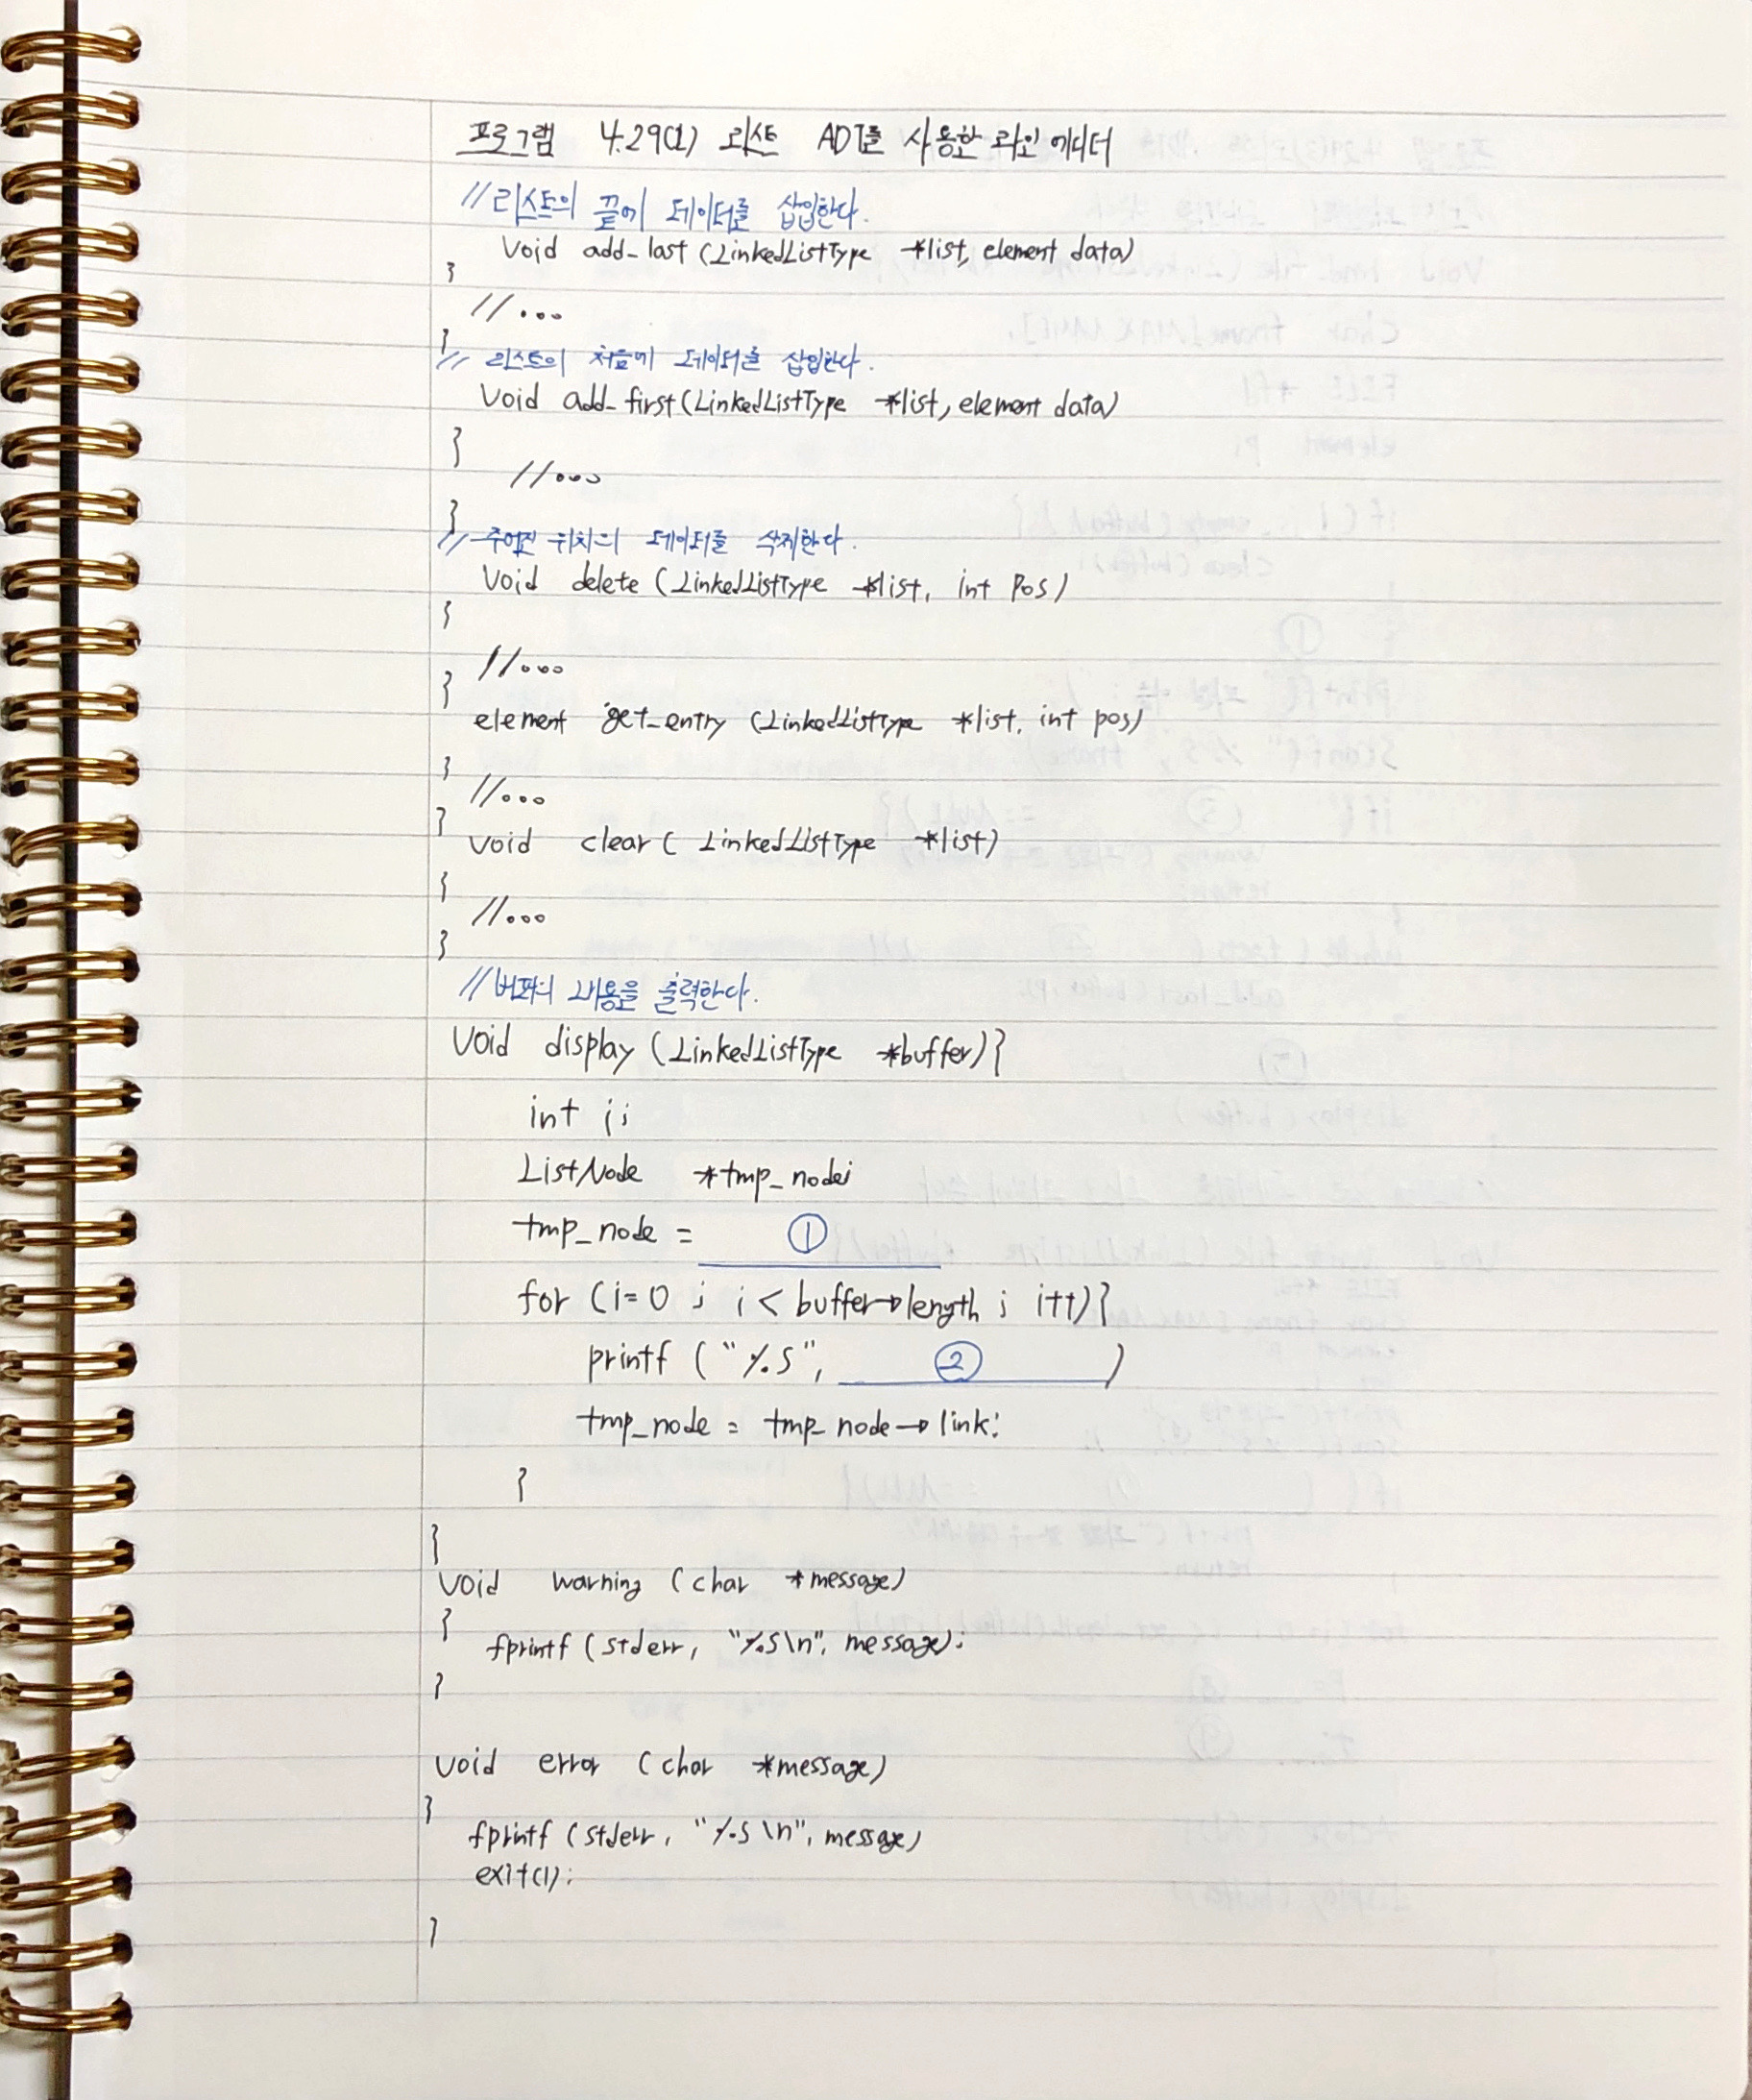 프로그램 4.29(1) 리스트 ADT를 사용한 라인 에디터
//리스트의 끝에 데이터를 삽입한다.
void add_last (LinkedListType *list, element data)
{
//...
}
// 리스트의 처음에 데이터를 삽입한다.
void add_first(LinkedListType *list, element data)
}
//...
}
// 주어진 위치의 데이터를 삭제한다.
void delete (LinkedListType *list, int pos)
{
//...
}
element get_entry (LinkedListType *list, int pos)
{
//...
}
void clear( LinkedListType *list)
{
//...
}
//버퍼의 내용을 출력한다.
void display (LinkedListType *buffer){
int i;
ListNode *tmp_node;
tmp_node = ①
for (i=0 ; i < buffer→length ; i++){
printf ("%s", ② )
tmp_node = tmp_node→link;
}
}
void warning (char *message)
{
fprintf (stderr, "%s\n", message);
}
void error (char *message)
{
fprintf (stderr, "%s \n", message)
exit(1);
}